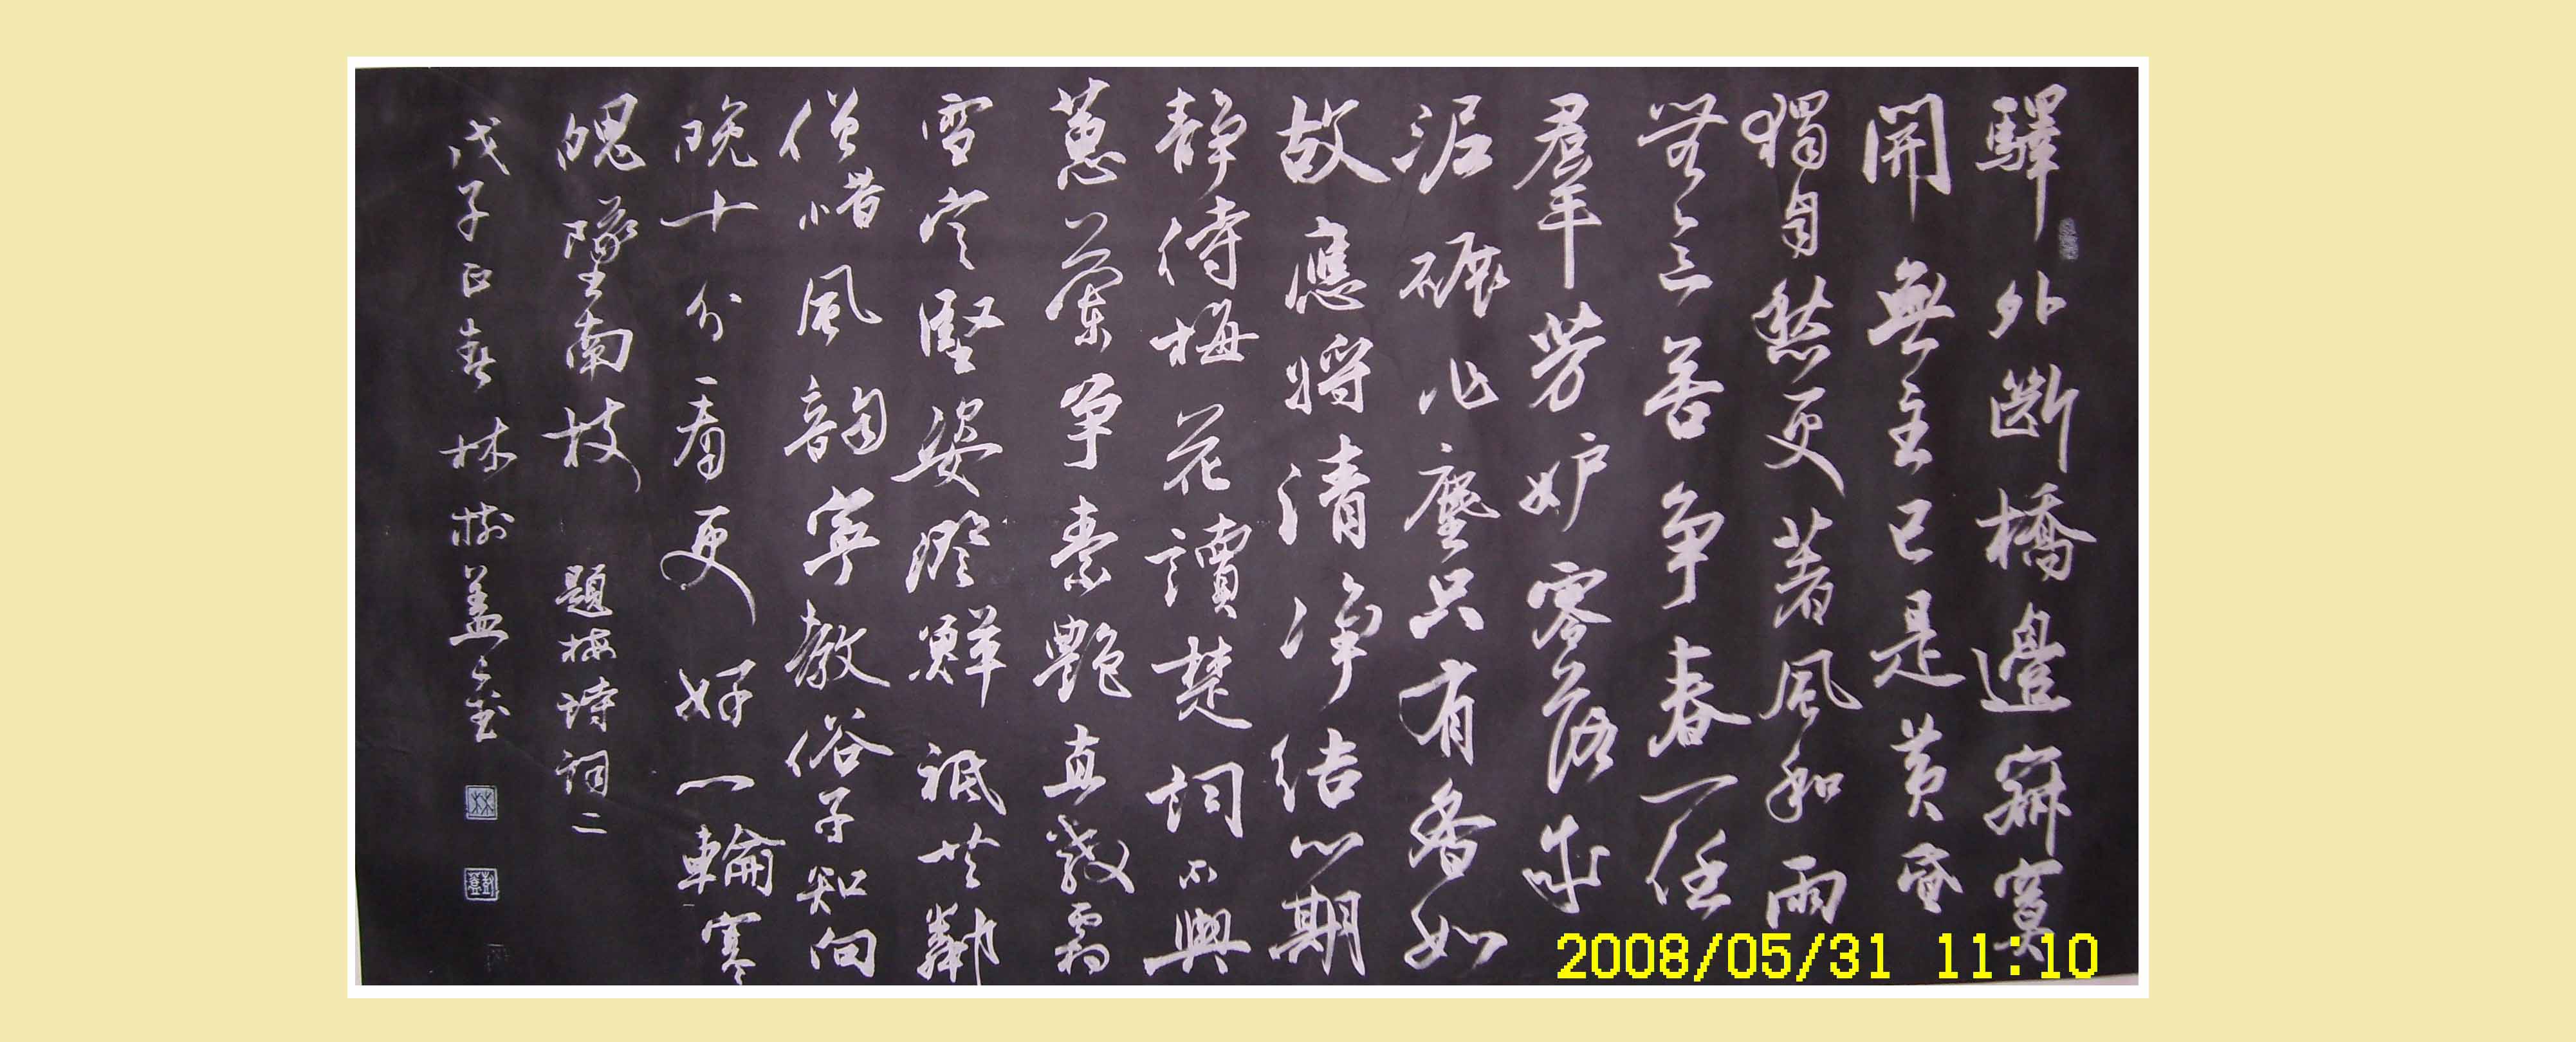 驛外斷橋邊寂寞
開無主已是黃昏
獨自愁更著風和雨
無意苦爭春一任
羣芳妒零落成
泥碾作塵只有香如
故應將清淨結心期
靜待梅花讀楚詞不與
蕙蘭爭素艷直教霜
雪定堅姿澄鮮祇共鄰
僧惜風韻寧教俗子知向
晚十分看更好一輪寒
魄墜南枝 題梅詩詞二
戊子正春 林樹蓋書
2008/05/31 11:10